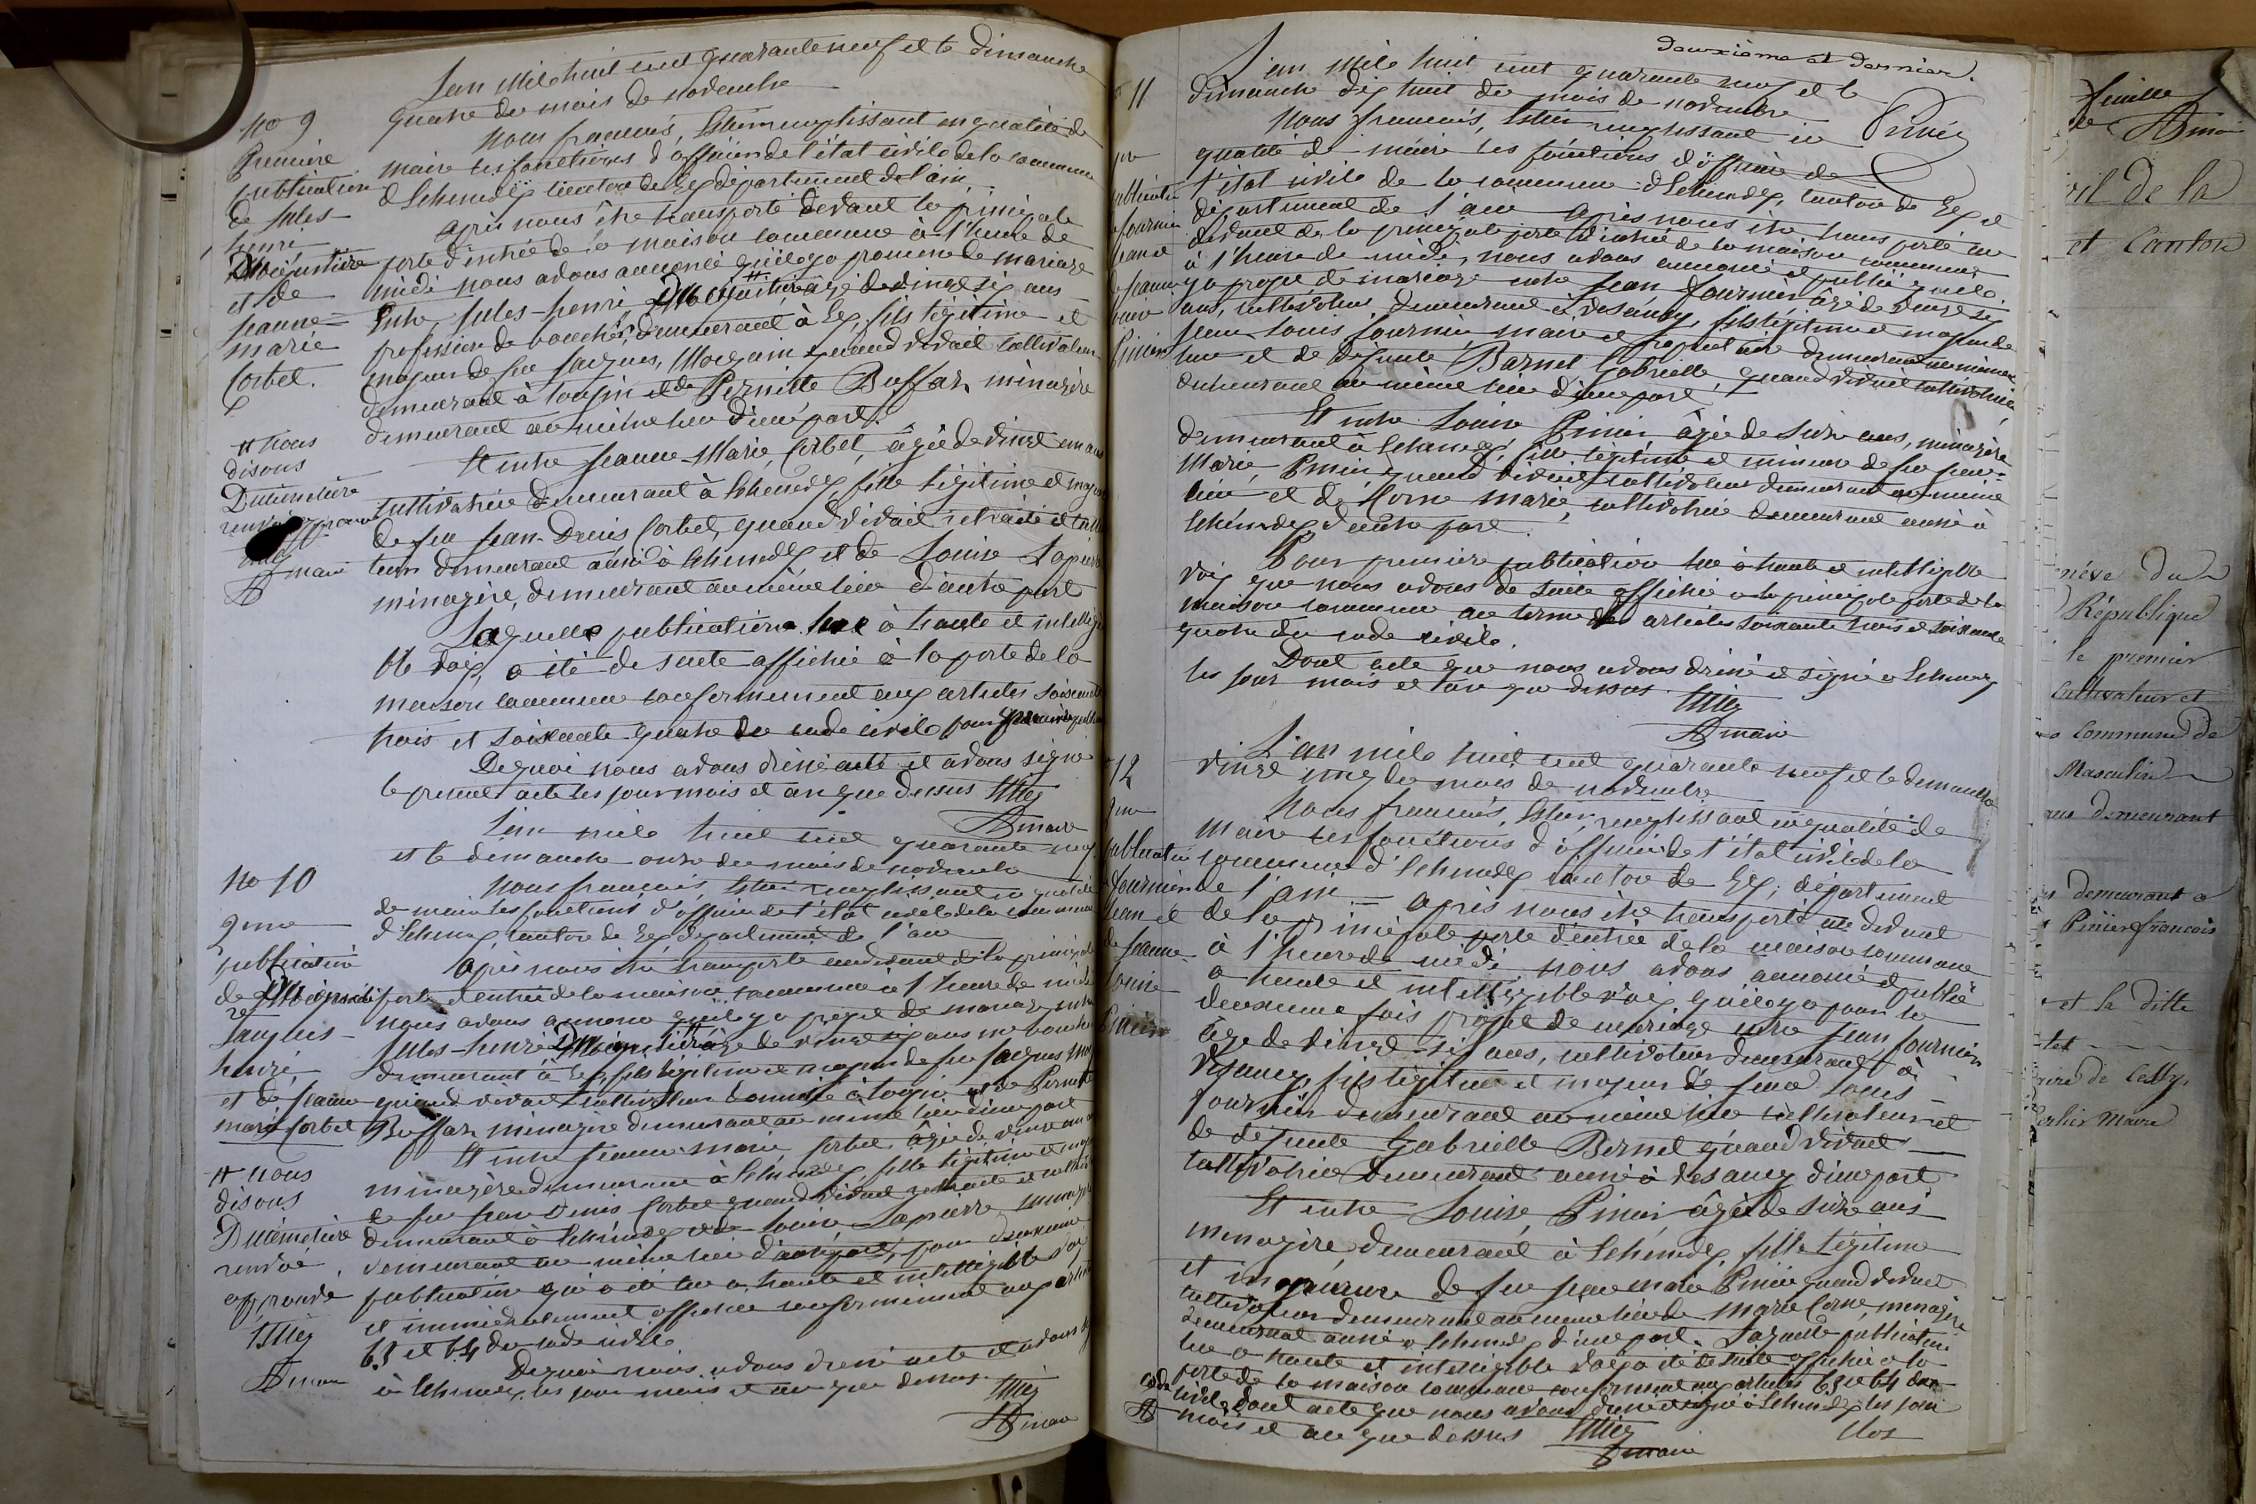 L'an mile huit cent quarante neuf et le dimanche
quatre du mois de novembre
no 9
Première
publication
de Jules
henri
et de
Jeanne
marie
Corbet.
nous françois, remplissant en qualité de
maire les fonctions d'officier de l'état civile de la commune
d'Echenevex canton de Gex département de l'ain
après nous être transporté devant la principale
porte d'entrée de la maison commune à l'heure de
midi nous avons annoncé qu'il y a promesse de mariage
Entre Jules-henri âgé de vingt six ans
profession de boucher, demeurant à Gex, fils légitime et
majeur de feu Jacques, quand vivait cultivateur
demeurant à tougin et de Pernette Buffaz ménagère
demeurant au même lieu d'une part.
Et entre Jeanne-Marie Corbet, âgée de vingt un ans
cultivatrice demeurant à Echenevex, fille légitime et majeure
de feu Jean-Denis Corbet, quand vivait retraité et
demeurant aussi à Echenevex et de Louise Lapierre
ménagère, demeurant au même lieu d'autre part
Laquelle publication lue à haute et intelligi
ble voix, a été de suite affichée à la porte de la
maison commune conformément aux articles soixante
trois et soixante quatre du code civile pour première
De quoi nous avons dressé acte et avons signé
le présent acte les jour mois et an que dessus
maire
# nous
disons
Ducimetière
renvoi
maire
L'an mile huit cent quarante neuf
et le dimanche onze du mois de novembre
no 10
2me
publication
de
Jacques
henri
et de Jeanne
marie Corbet
nous françois, remplissant en qualité
de maire les fonctions d'officier de l'état civile de la commune
d'Echenevex, canton de Gex département de l'ain
Après nous être transporté au devant de la principale
porte d'entrée de la maison commune à l'heure de midi
nous avons annoncé qu'il y a projet de mariage entre
Jules-henri âgé de vingt six ans
demeurant à Gex, fils légitime et majeur de feu Jacques
quand vivait cultivateur domicilié à tougin et de Pernette
Buffaz ménagère demeurant au même lieu d'une part
Et entre Jeanne marie Corbet âgée de vingt un ans
ménagère demeurant à Echenevex, fille légitime et
de feu Jean Denis Corbet quand vivait retraité et
demeurant à Echenevex et de Louise Lapierre
demeurant au même lieu d'autre part, pour deuxième
publication qui a été lue à haute et intelligible voix
et immédiatement affichée conformément aux articles
63 et 64 du code civile
De quoi nous avons dressé acte et avons
à Echenevex, les jour mois et an que dessus
maire
# nous
disons
Ducimetière
renvoi
approuvé
maire
deuxième et dernier.
11
publication
fournier
jean et
Jeanne
L'an mile huit cent quarante neuf et le
dimanche dix huit du mois de novembre
Nous françois, remplissant en
qualité de maire les fonctions d'officier de
l'état civile de la commune d'Echenevex, canton de Gex
département de l'ain après nous être transporté au
devant de la principale porte d'entrée de la maison commune
à l'heure de midi, nous avons annoncé et publié qu'il
y a projet de mariage entre Jean fournier âgé de vingt six
ans, cultivateur demeurant à Vesancy, fils légitime et majeur de
Jean Louis fournier, maire et demeurant au même
lieu et de défunte Barnet Gabrielle, quand vivait cultivatrice
demeurant au même lieu d'une part
Et entre Louise Pinier âgée de seize ans, ménagère
demeurant à Echenevex, fille légitime et mineure de feu Jean
Marie Pinier quand vivait cultivateur demeurant au même
lieu et de marie, cultivatrice demeurant aussi à
Echenevex d'autre part.
Pour première publication lue à haute et intelligible
voix que nous avons de suite affichée à la principale porte de la
maison commune au terme des articles soixante trois et soixante
quatre du code civile.
Dont acte que nous avons dressé et signé à Echenevex
les jour mois et an que dessus
maire
12
2me
publication
fournier
jean et
de Jeanne
Louise
Pinier
L'an mile huit cent quarante neuf et le dimanche
vingt cinq du mois de novembre
Nous françois, remplissant en qualité de
maire les fonctions d'officier de l'état civile de la
commune d'Echenevex canton de Gex, département
de l'ain — après nous être transporté au devant
de la principale porte d'entrée de la maison commune
à l'heure de midi, nous avons annoncé et publié
à haute et intelligible voix qu'il y a pour la
deuxième fois projet de mariage entre Jean fournier
âgé de vingt-six ans, cultivateur demeurant à
Vesancy, fils légitime et majeur de Jean Louis
fournier demeurant au même lieu cultivateur et
de défunte Gabrielle Bernet quand vivait
cultivatrice demeurant aussi à Vesancy d'une part
Et entre Louise Pinier âgée de seize ans
ménagère demeurant à Echenevex, fille légitime
et mineure de feu Jean marie Pinier quand vivait
cultivateur demeurant au même lieu et de Marie ménagère
demeurant aussi à Echenevex d'une part. Laquelle publication
lue à haute et intelligible voix a été de suite affichée à la
porte de la maison commune conformément aux articles 63 et 64 du
code civile dont acte que nous avons dressé et signé à Echenevex les jour
mois et an que dessus
Clos
maire
feuille
de
il de la
et Canton
du
République
le premier
Cultivateur et
Commune de
Masculin
demeurant
demeurant a
Pinier francois
et la ditte
de Cessy
Maire